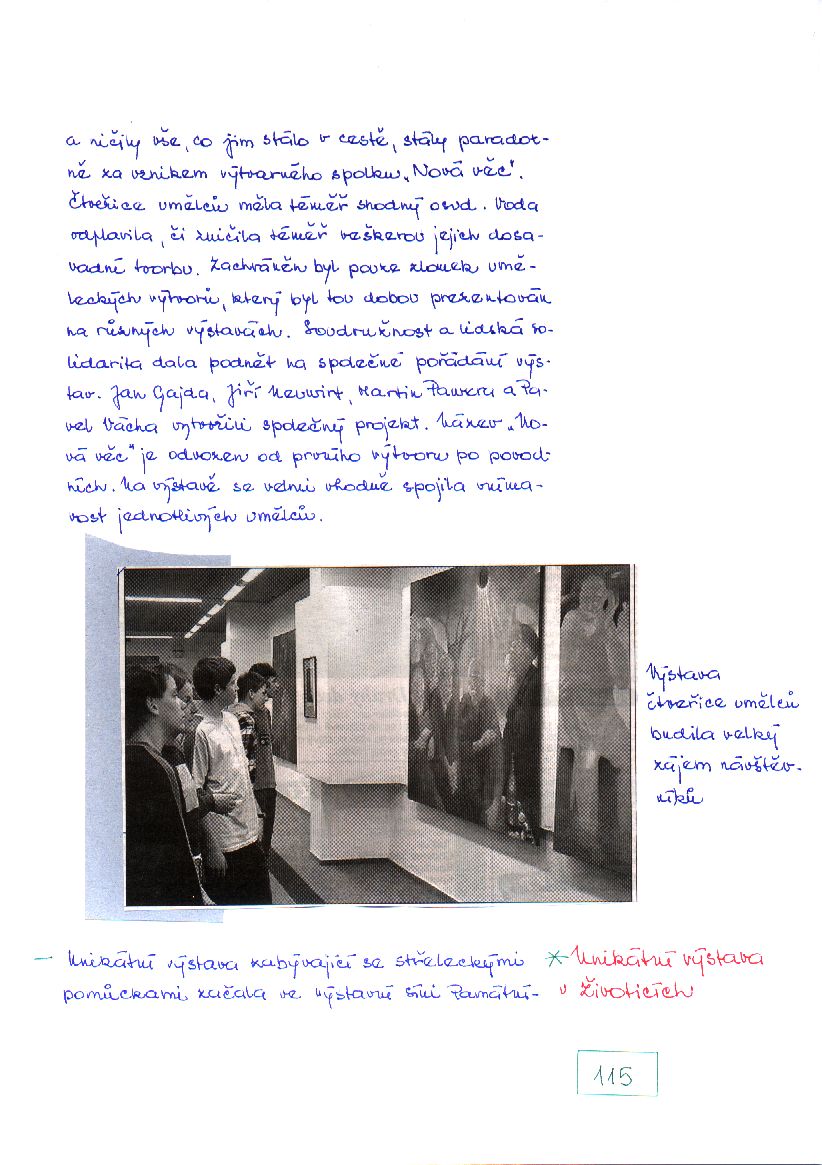 a ničily vše, co jim stálo v cestě, stály paradox-
ně za vznikem výtvarného spolku „Nová věc".
Čtveřice umělců měla téměř shodný osud. Voda
odplavila, či zničila téměř veškerou jejich dosa-
vadní tvorbu. Zachráněn byl pouze zlomek umě-
leckých výtvorů, který byl tou dobou prezentován
na různých výstavách. Soudružnost a lidská so-
lidarita dala podnět na společné pořádání výs-
tav. Jan Gajda, Jiří Neuwirt, Martin Pawera a Pa-
vel Vácha vytvořili společný projekt. Název „No-
vá věc" je odvozen od prvního výtvoru po povod-
ních. Na výstavě se velmi vhodně spojila vníma-
vost jednotlivých umělců.
Výstava
čtveřice umělců
budila velký
zájem návštěv-
níků
– Unikátní výstava zabývající se střeleckými
pomůckami začala ve výstavní síni Památní-
* Unikátní výstava
v Životicích
115